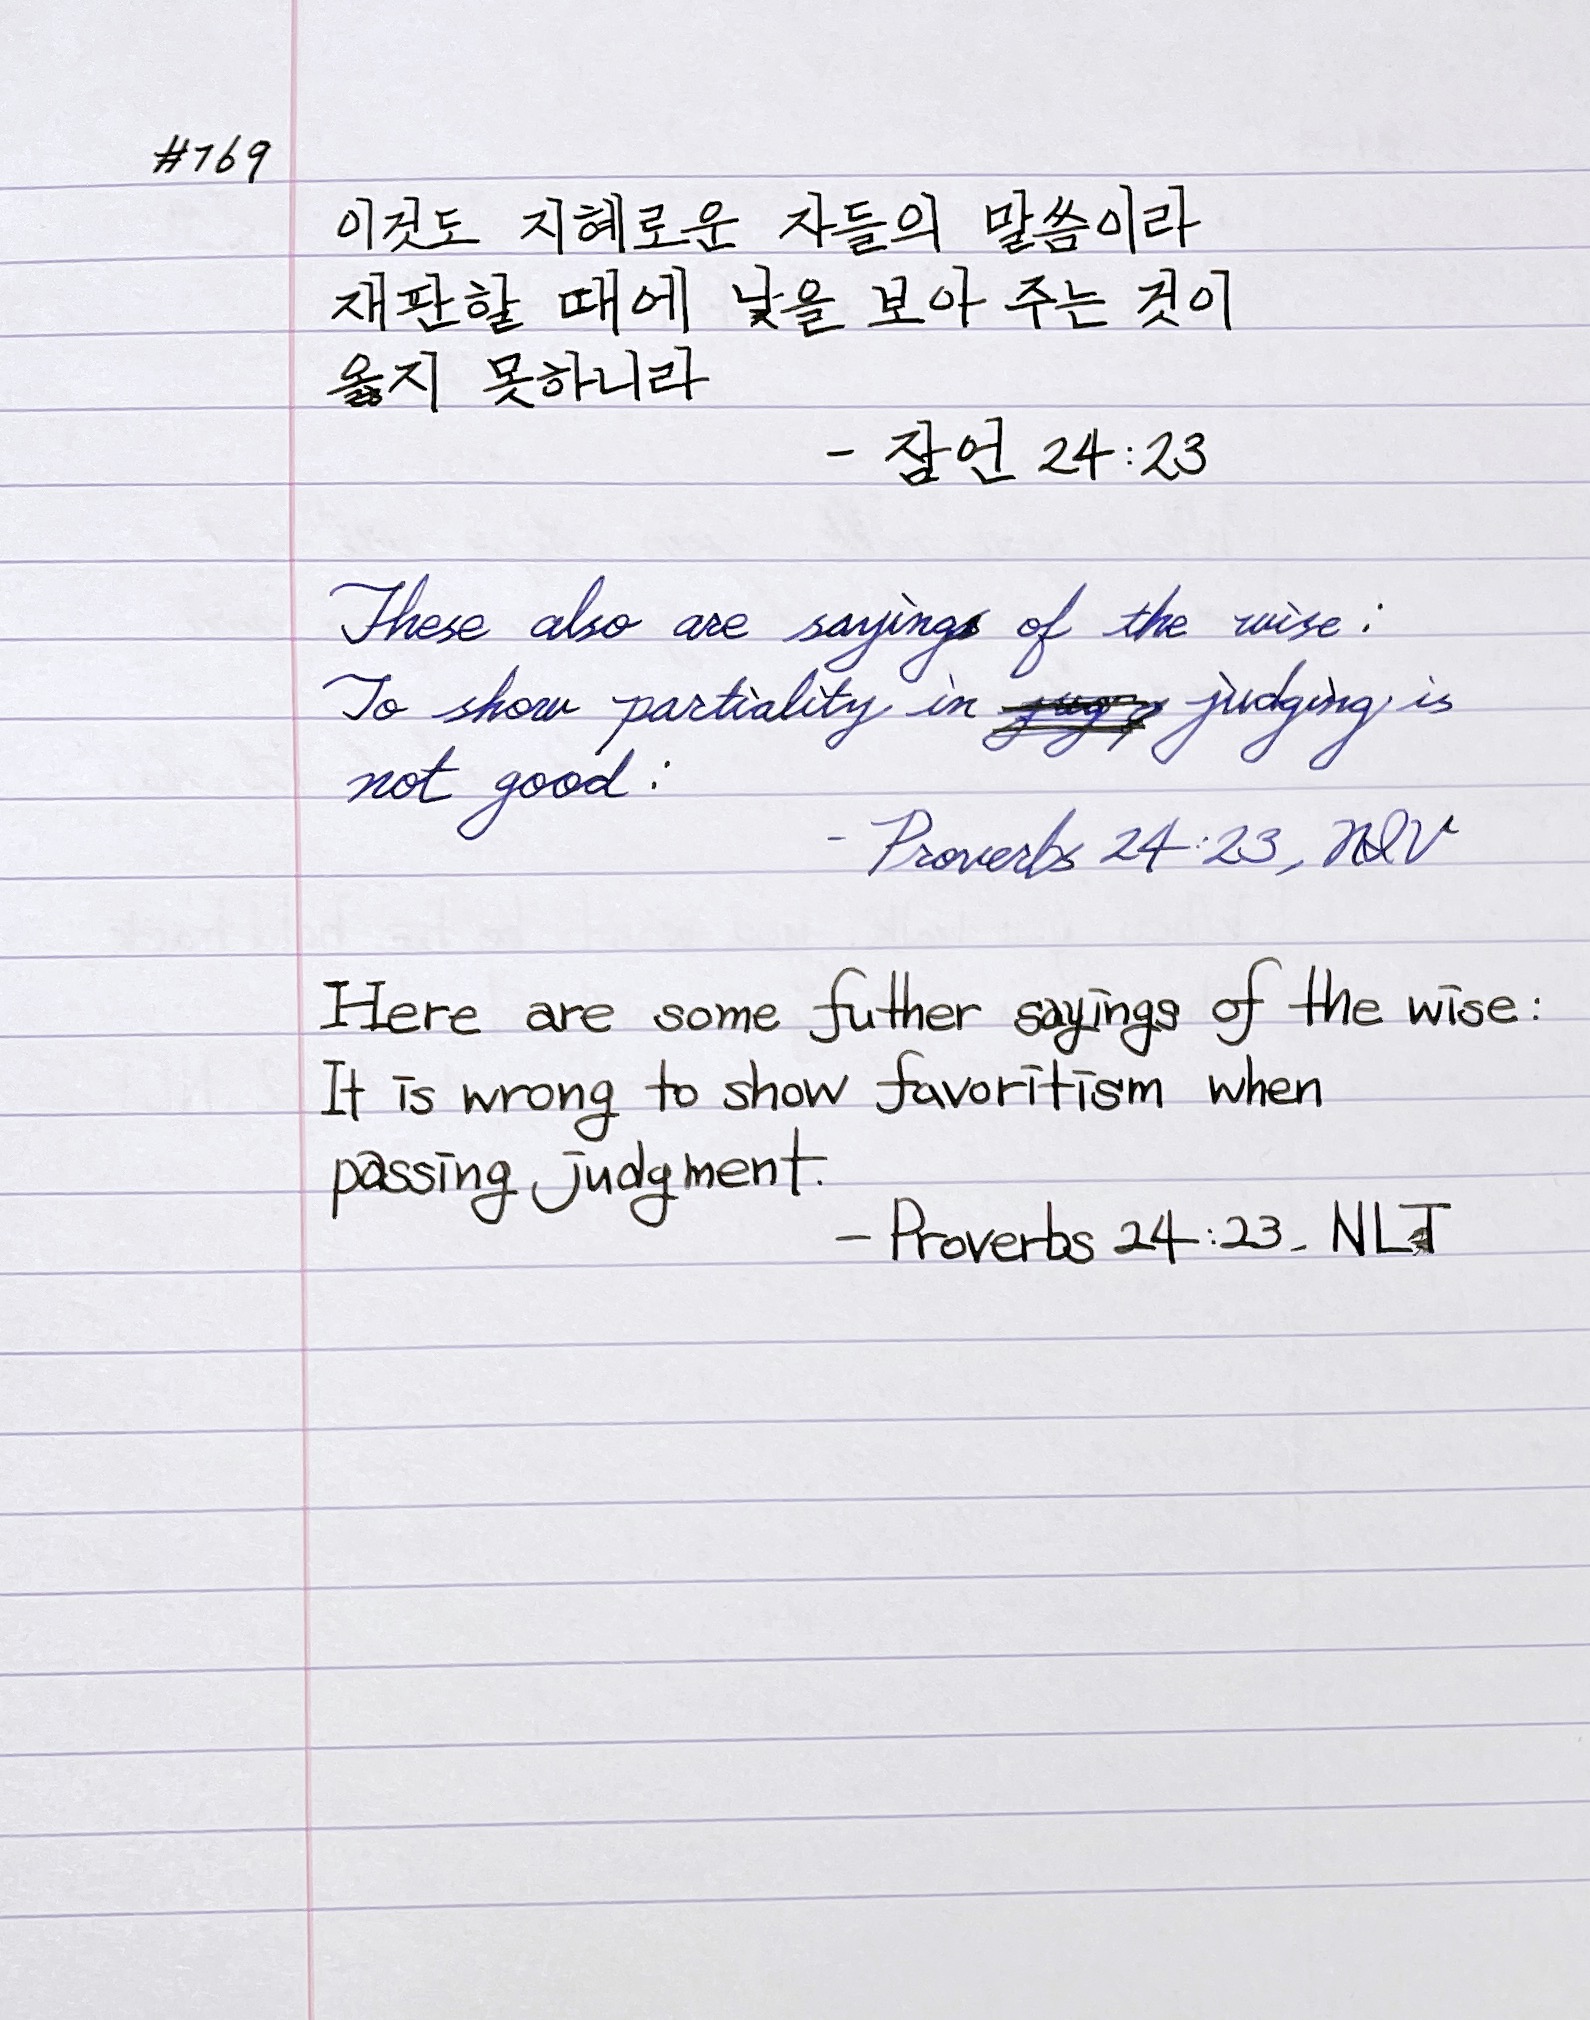 #769
이것도 지혜로운 자들의 말씀이라
재판할 때에 낯을 보아 주는 것이
옳지 못하니라
- 잠언 24:23
These also are sayings of the wise:
To show partiality in judging is
not good:
- Proverbs 24:23, NIV
Here are some futher sayings of the wise:
It is wrong to show favoritism when
passing judgment.
- Proverbs 24:23, NLT